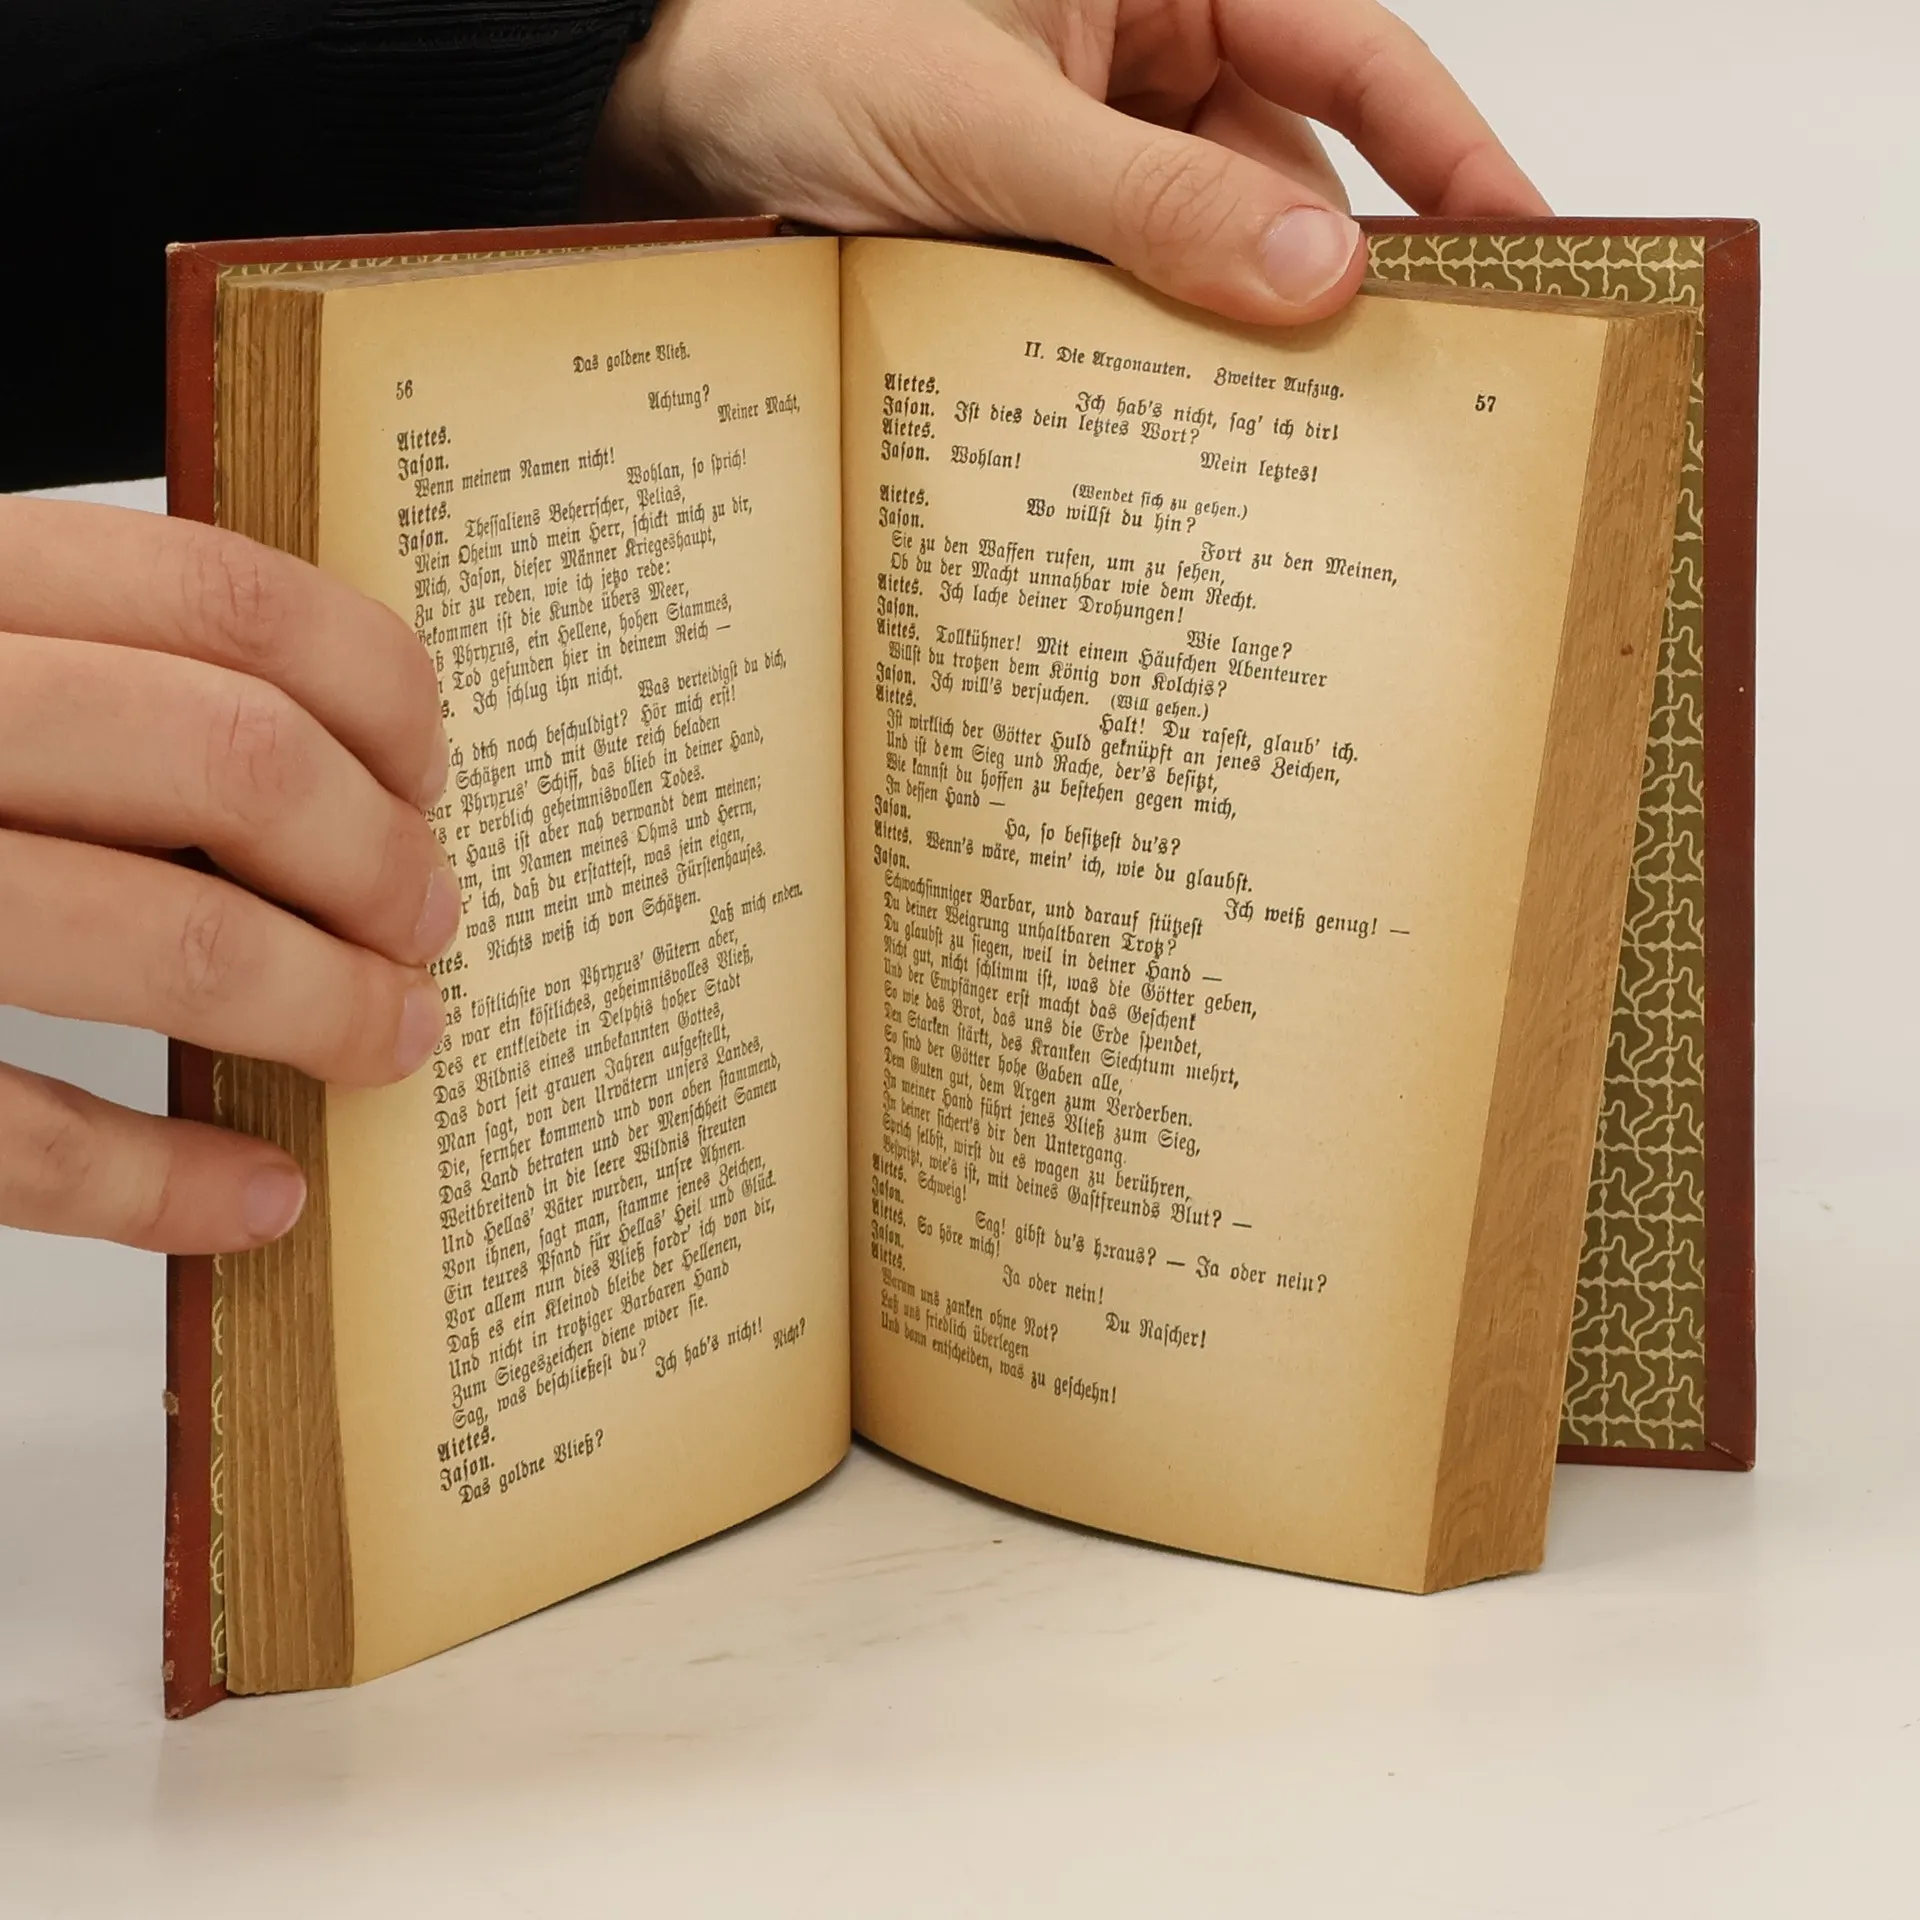 56
Das goldene Vließ.
Achtung?
Aietes.
Meiner Macht,
Jason.
Wenn meinem Namen nicht!
Aietes.
Wohlan, so sprich!
Jason. Thessaliens Beherrscher, Pelias,
Mein Oheim und mein Herr, schickt mich zu dir,
Mich, Jason, dieser Männer Kriegeshaupt,
Zu dir zu reden, wie ich jetzo rede:
Gekommen ist die Kunde übers Meer,
Phryxus, ein Hellene, hohen Stammes,
Tod gefunden hier in deinem Reich —
Ich schlug ihn nicht.
Was verteidigst du dich,
dich noch beschuldigt? Hör mich erst!
Schätzen und mit Gute reich beladen
War Phryxus' Schiff, das blieb in deiner Hand,
er verblich geheimnisvollen Todes.
Haus ist aber nah verwandt dem meinen;
im Namen meines Ohms und Herrn,
ich, daß du erstattest, was sein eigen,
was nun mein und meines Fürstenhauses.
Nichts weiß ich von Schätzen.
Laß mich enden.
köstlichste von Phryxus' Gütern aber,
Es war ein köstliches, geheimnisvolles Vließ,
Des er entkleidete in Delphis hoher Stadt
Das Bildnis eines unbekannten Gottes,
Das dort seit grauen Jahren aufgestellt,
Man sagt, von den Urvätern unsers Landes,
Die, fernher kommend und von oben stammend,
Das Land betraten und der Menschheit Samen
Weitbreitend in die leere Wildnis streuten
Und Hellas' Väter wurden, unsre Ahnen.
Von ihnen, sagt man, stamme jenes Zeichen,
Ein teures Pfand für Hellas' Heil und Glück.
Vor allem nun dies Vließ fordr' ich von dir,
Daß es ein Kleinod bleibe der Hellenen,
Und nicht in trotziger Barbaren Hand
Zum Siegeszeichen diene wider sie.
Sag, was beschließest du?
Aietes.
Ich hab's nicht!
Jason.
Nicht?
Das goldne Vließ?
II. Die Argonauten. Zweiter Aufzug.
57
Aietes.
Ich hab's nicht, sag' ich dir!
Jason. Ist dies dein letztes Wort?
Aietes.
Mein letztes!
Jason. Wohlan!
(Wendet sich zu gehen.)
Aietes.
Wo willst du hin?
Jason.
Fort zu den Meinen,
Sie zu den Waffen rufen, um zu sehen,
Ob du der Macht unnahbar wie dem Recht.
Aietes. Ich lache deiner Drohungen!
Jason.
Wie lange?
Aietes. Tollkühner! Mit einem Häufchen Abenteurer
Willst du trotzen dem König von Kolchis?
Jason. Ich will's versuchen. (Will gehen.)
Aietes.
Halt! Du rasest, glaub' ich.
Ist wirklich der Götter Huld geknüpft an jenes Zeichen,
Und ist dem Sieg und Rache, der's besitzt,
Wie kannst du hoffen zu bestehen gegen mich,
In dessen Hand —
Jason.
Ha, so besitzest du's?
Aietes. Wenn's wäre, mein' ich, wie du glaubst.
Jason.
Ich weiß genug! —
Schwachsinniger Barbar, und darauf stützest
Du deiner Weigrung unhaltbaren Trotz?
Du glaubst zu siegen, weil in deiner Hand —
Nicht gut, nicht schlimm ist, was die Götter geben,
Und der Empfänger erst macht das Geschenk
So wie das Brot, das uns die Erde spendet,
Den Starken stärkt, des Kranken Siechtum mehrt,
So sind der Götter hohe Gaben alle,
Dem Guten gut, dem Argen zum Verderben.
In meiner Hand führt jenes Vließ zum Sieg,
In deiner sichert's dir den Untergang.
Sprich selbst, wirst du es wagen zu berühren,
Bespritzt, wie's ist, mit deines Gastfreunds Blut? —
Aietes. Schweig!
Jason.
Sag! gibst du's heraus? — Ja oder nein?
Aietes. So höre mich!
Jason.
Ja oder nein!
Aietes.
Du Rascher!
Warum uns zanken ohne Not?
Laß uns friedlich überlegen
Und dann entscheiden, was zu geschehn!